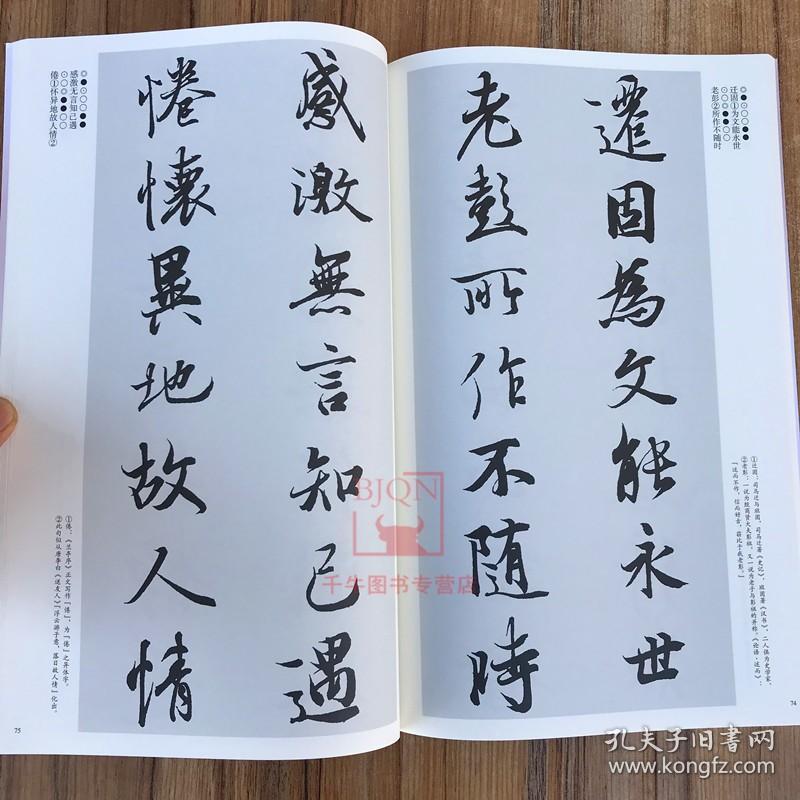 遷固為文能永世
老彭所作不隨時
迁固①为文能永世
老彭②所作不随时
①迁固：司马迁与班固，司马迁著《史记》，班固著《汉书》，二人俱为史学家。
②老彭：一说为殷商贤大夫彭祖，又一说为老子与彭祖的并称。《论语·述而》：
「述而不作，信而好古，窃比于我老彭。」
74
感激無言知己遇
惓懷異地故人情
感激无言知己遇
倦①怀异地故人情②
①倦：《兰亭序》正文写作「惓」，为「倦」之异体字。
②此句似从唐李白《送友人》「浮云游子意，落日故人情」化出。
75
BJQN
千牛图书专营店
孔夫子旧书网
www.kongfz.com